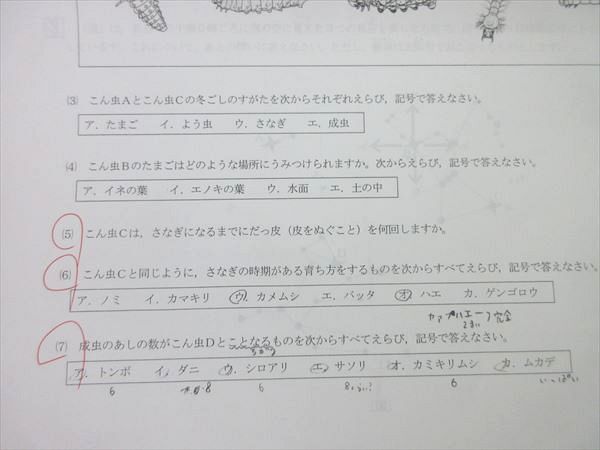 (3) こん虫Aとこん虫Cの冬ごしのすがたを次からそれぞれえらび，記号で答えなさい。
ア．たまご　イ．よう虫　ウ．さなぎ　エ．成虫
(4) こん虫Bのたまごはどのような場所にうみつけられますか。次からえらび，記号で答えなさい。
ア．イネの葉　イ．エノキの葉　ウ．水面　エ．土の中
(5) こん虫Cは，さなぎになるまでにだっ皮（皮をぬぐこと）を何回しますか。
(6) こん虫Cと同じように，さなぎの時期がある育ち方をするものを次からすべてえらび，記号で答えなさい。
ア．ノミ　イ．カマキリ　ウ．カメムシ　エ．バッタ　オ．ハエ　カ．ゲンゴロウ
完全
(7) 成虫のあしの数がこん虫Dとことなるものを次からすべてえらび，記号で答えなさい。
ちがう
ア．トンボ　イ．ダニ　ウ．シロアリ　エ．サソリ　オ．カミキリムシ　カ．ムカデ
6　8　6　8　6　いっぱい